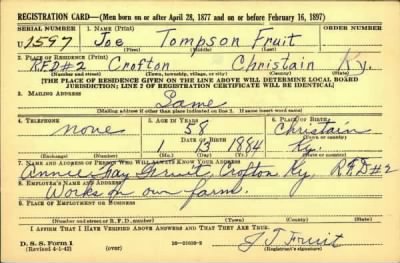 REGISTRATION CARD—(Men born on or after April 28, 1877 and on or before February 16, 1897)
SERIAL NUMBER 1. NAME (Print) ORDER NUMBER
U 1597 Joe Tompson Fruit
(First) (Middle) (Last)
2. PLACE OF RESIDENCE (Print)
RFD#2 Crofton Christain Ky.
(Number and street) (Town, township, village, or city) (County) (State)
[THE PLACE OF RESIDENCE GIVEN ON THE LINE ABOVE WILL DETERMINE LOCAL BOARD
JURISDICTION; LINE 2 OF REGISTRATION CERTIFICATE WILL BE IDENTICAL]
3. MAILING ADDRESS
Same
[Mailing address if other than place indicated on line 2. If same insert word same]
4. TELEPHONE 5. AGE IN YEARS 6. PLACE OF BIRTH
none 58 Christain
DATE OF BIRTH (Town or county)
1 13 1884 Ky.
(Exchange) (Number) (Mo.) (Day) (Yr.) (State or country)
7. NAME AND ADDRESS OF PERSON WHO WILL ALWAYS KNOW YOUR ADDRESS
Annie Gay Fruit, Crofton Ky, RFD#2
8. EMPLOYER'S NAME AND ADDRESS
Works on own farm.
9. PLACE OF EMPLOYMENT OR BUSINESS
(Number and street or R. F. D. number) (Town) (County) (State)
I AFFIRM THAT I HAVE VERIFIED ABOVE ANSWERS AND THAT THEY ARE TRUE.
D. S. S. Form 1
(Revised 4-1-42) (over) J T Fruit
(Registrant's signature)